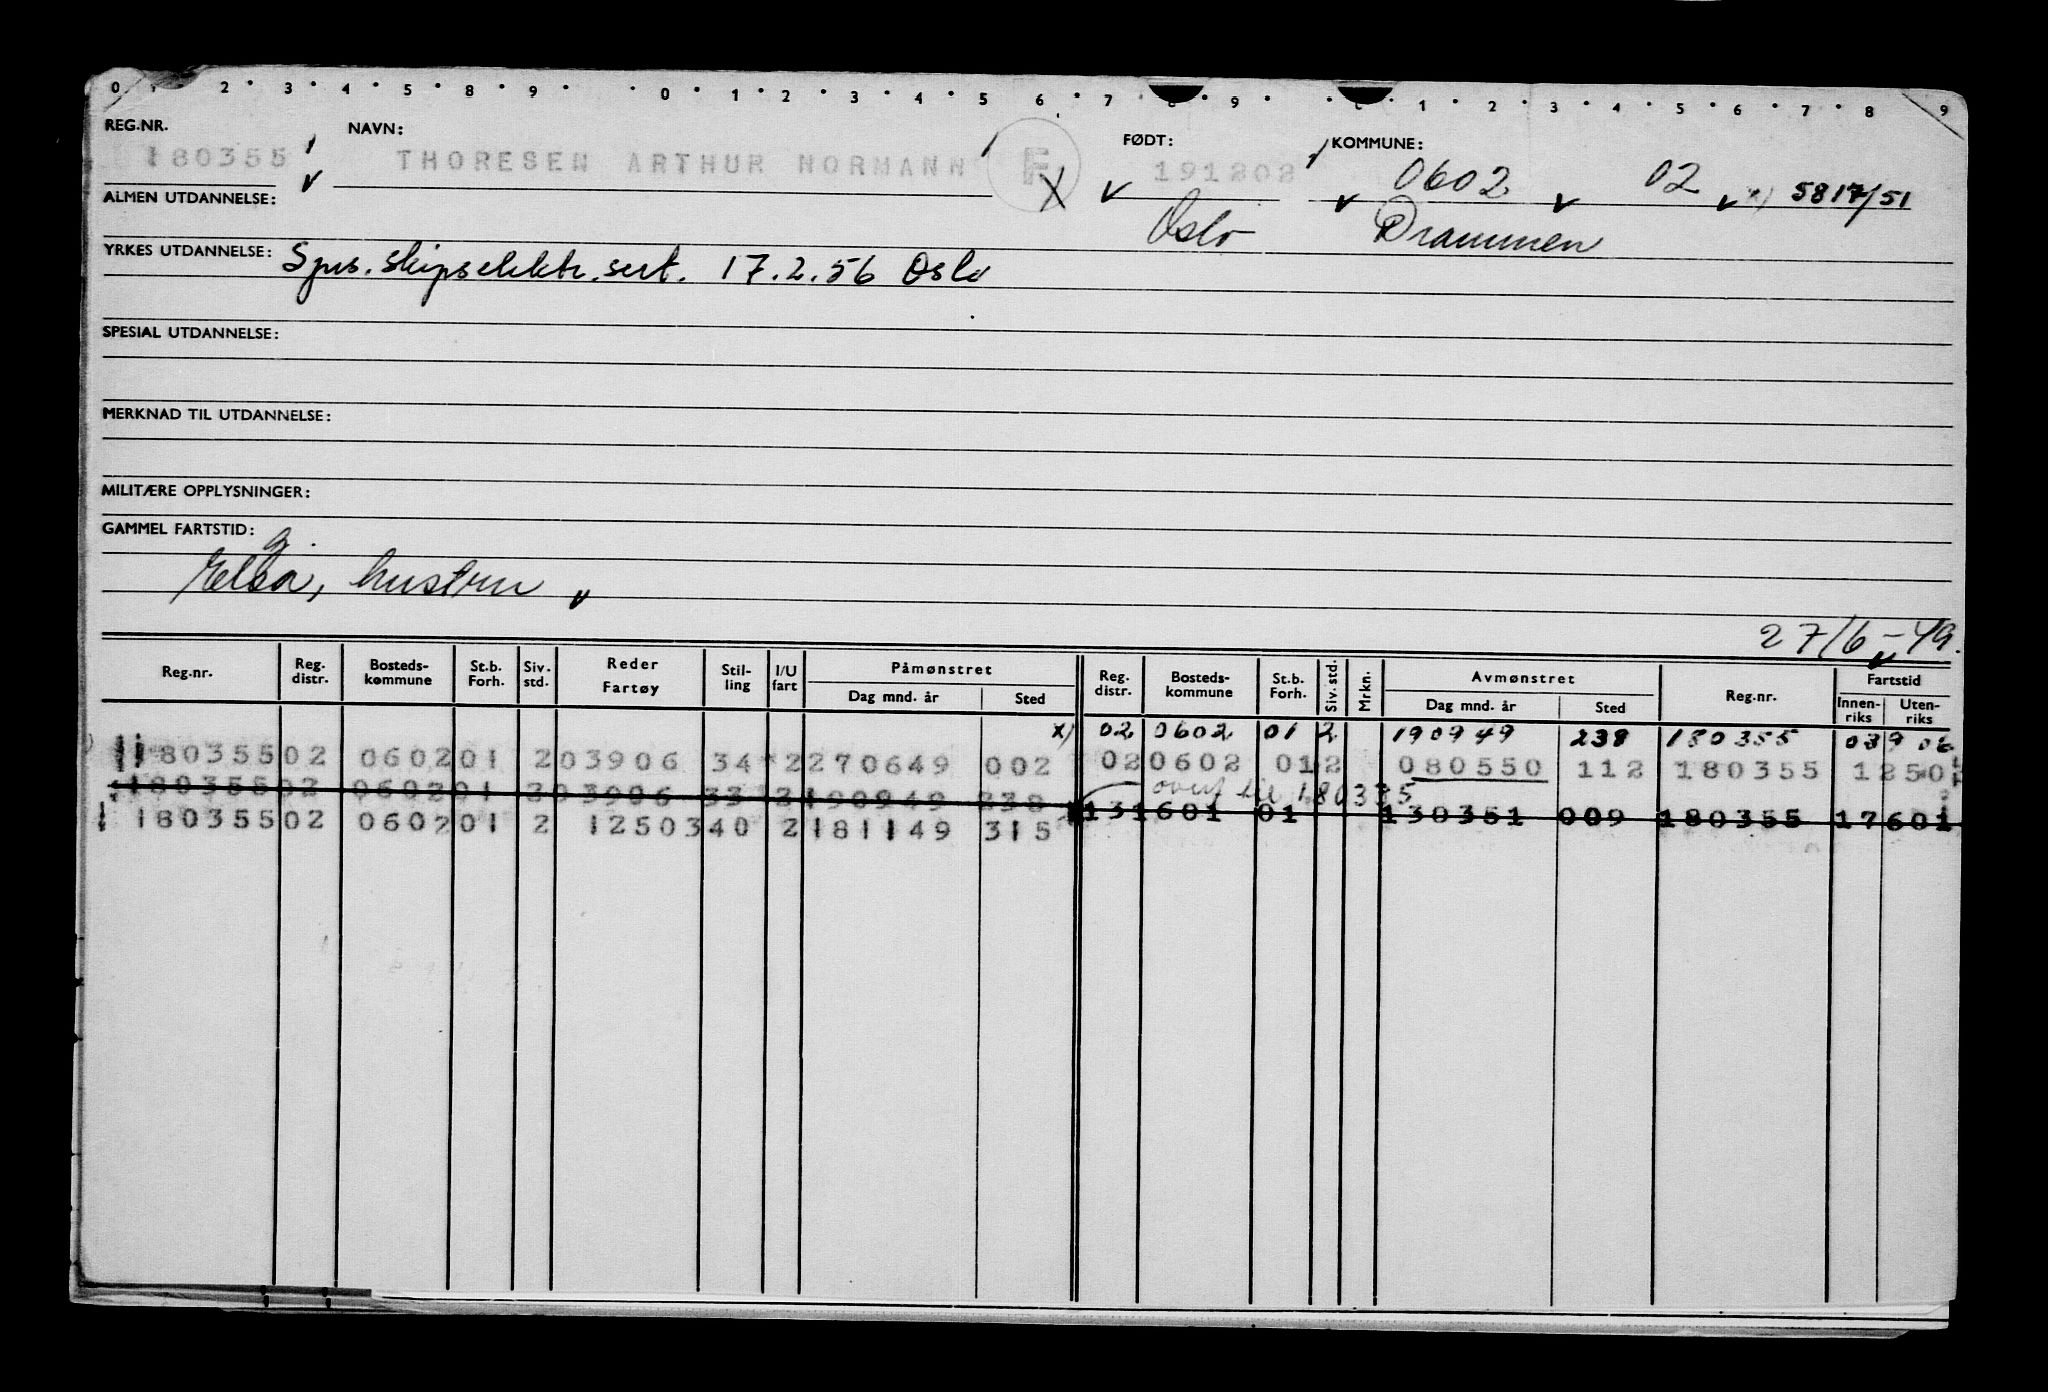 0 1 2 3 4 5 6 7 8 9 0 1 2 3 4 5 6 7 8 9 0 1 2 3 4 5 6 7 8 9
REG.NR. NAVN: FØDT: KOMMUNE:
180355 THORESEN ARTHUR NORMANN F 191202 0602 02 x) 5817/51
ALMEN UTDANNELSE: Oslo Drammen
YRKES UTDANNELSE: Spes. skipselektr. sert. 17.2.56 Oslo
SPESIAL UTDANNELSE:
MERKNAD TIL UTDANNELSE:
MILITÆRE OPPLYSNINGER:
GAMMEL FARTSTID:
g.
Elsa, hustru
27/6-49.
Reg.nr. Reg. distr. Bosteds-kommune St.b. Forh. Siv. std. Reder Fartøy Stil-ling I/U fart Påmønstret Dag mnd. år Sted Reg. distr. Bosteds-kommune St.b. Forh. Siv. std. Mrkn. Avmønstret Dag mnd. år Sted Reg.nr. Fartstid Innen-riks Uten-riks
x) 02 0602 01 2 190949 238 180355 03906
180355 02 0602 01 2 03906 34 2 270649 002 02 0602 01 2 080550 112 180355 12503
180355 02 0602 01 2 03906 33 2 190949 238 overf til 180335
131601 01 130351 009 180355 17601
180355 02 0602 01 2 12503 40 2 181149 315